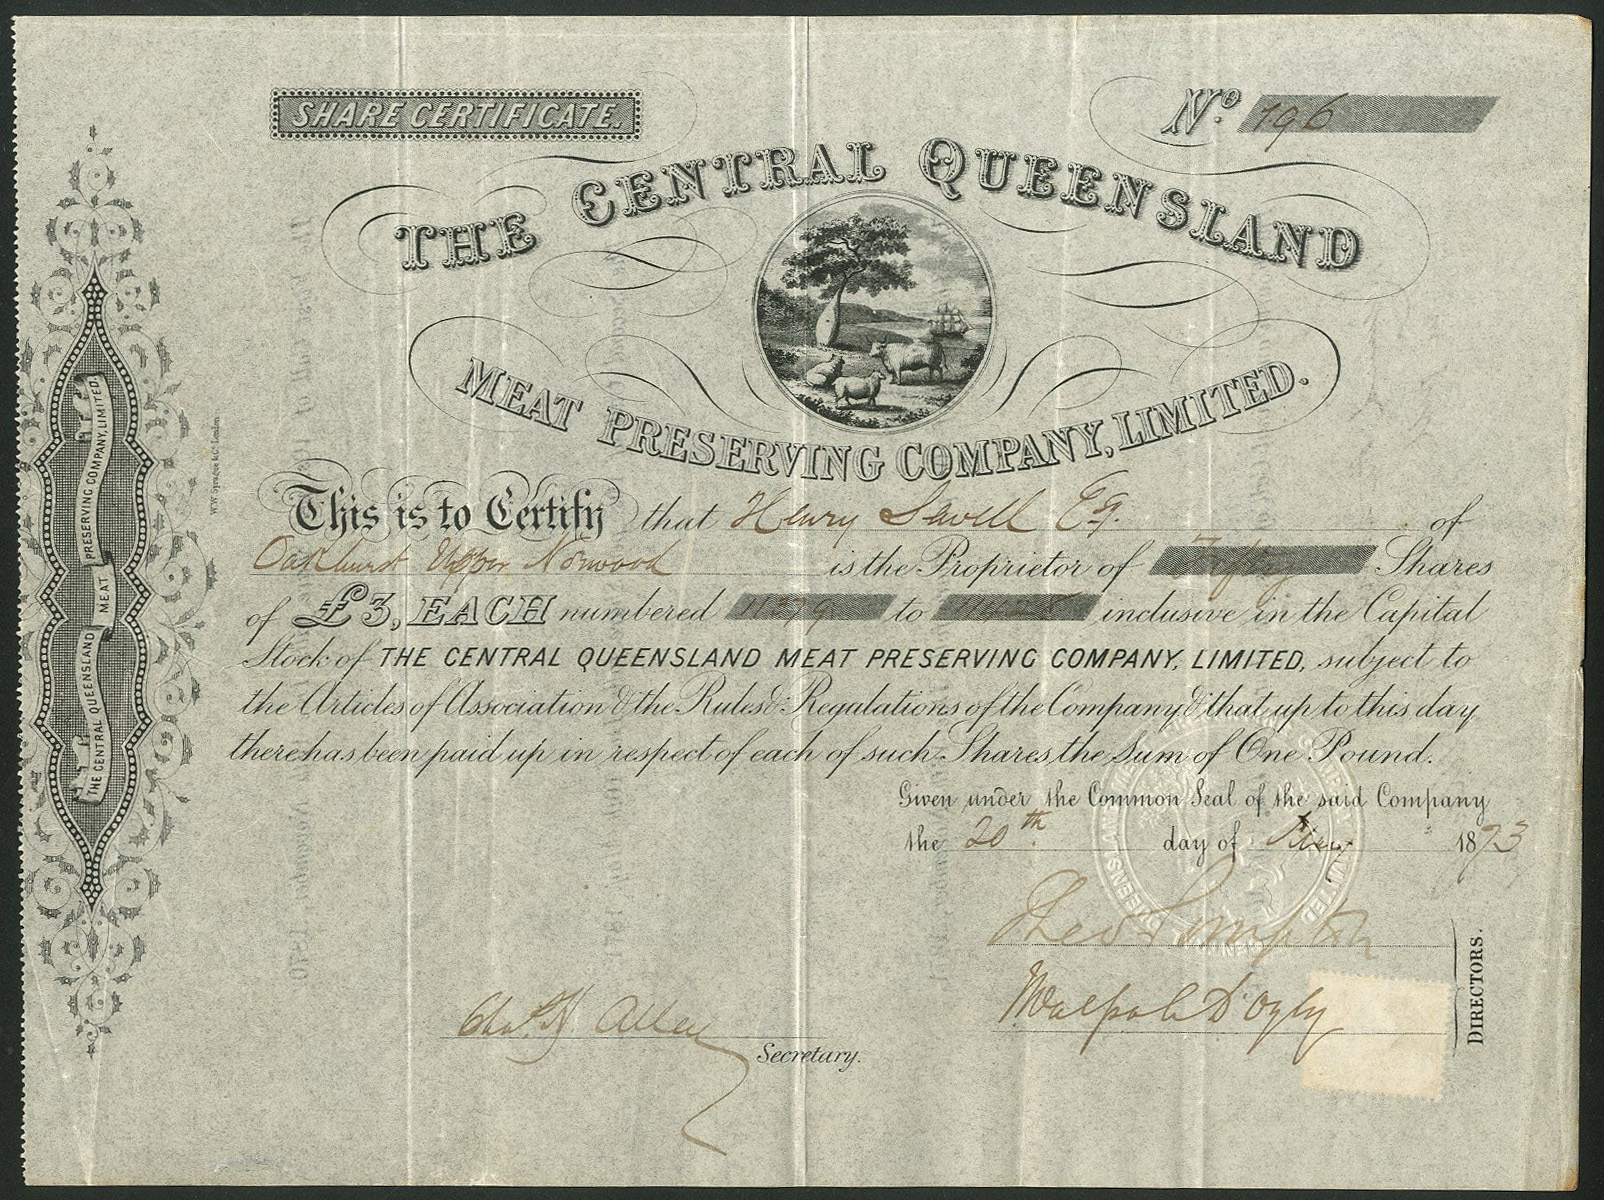 SHARE CERTIFICATE.
No. 796
THE CENTRAL QUEENSLAND
MEAT PRESERVING COMPANY, LIMITED.
This is to Certify that Henry Savell Esq. of
Oakhurst Upper Norwood is the Proprietor of Fifty Shares
of £3, EACH numbered 11379 to 11428 inclusive in the Capital
Stock of THE CENTRAL QUEENSLAND MEAT PRESERVING COMPANY, LIMITED, subject to
the Articles of Association & the Rules & Regulations of the Company & that up to this day
there has been paid up in respect of each of such Shares, the Sum of One Pound.
Given under the Common Seal of the said Company
the 20th day of May 1873
DIRECTORS.
Walpole D'Oyly
Chas. H Allen
Secretary.
THE CENTRAL QUEENSLAND MEAT PRESERVING COMPANY, LIMITED.
W.W. Sprague & Co. London